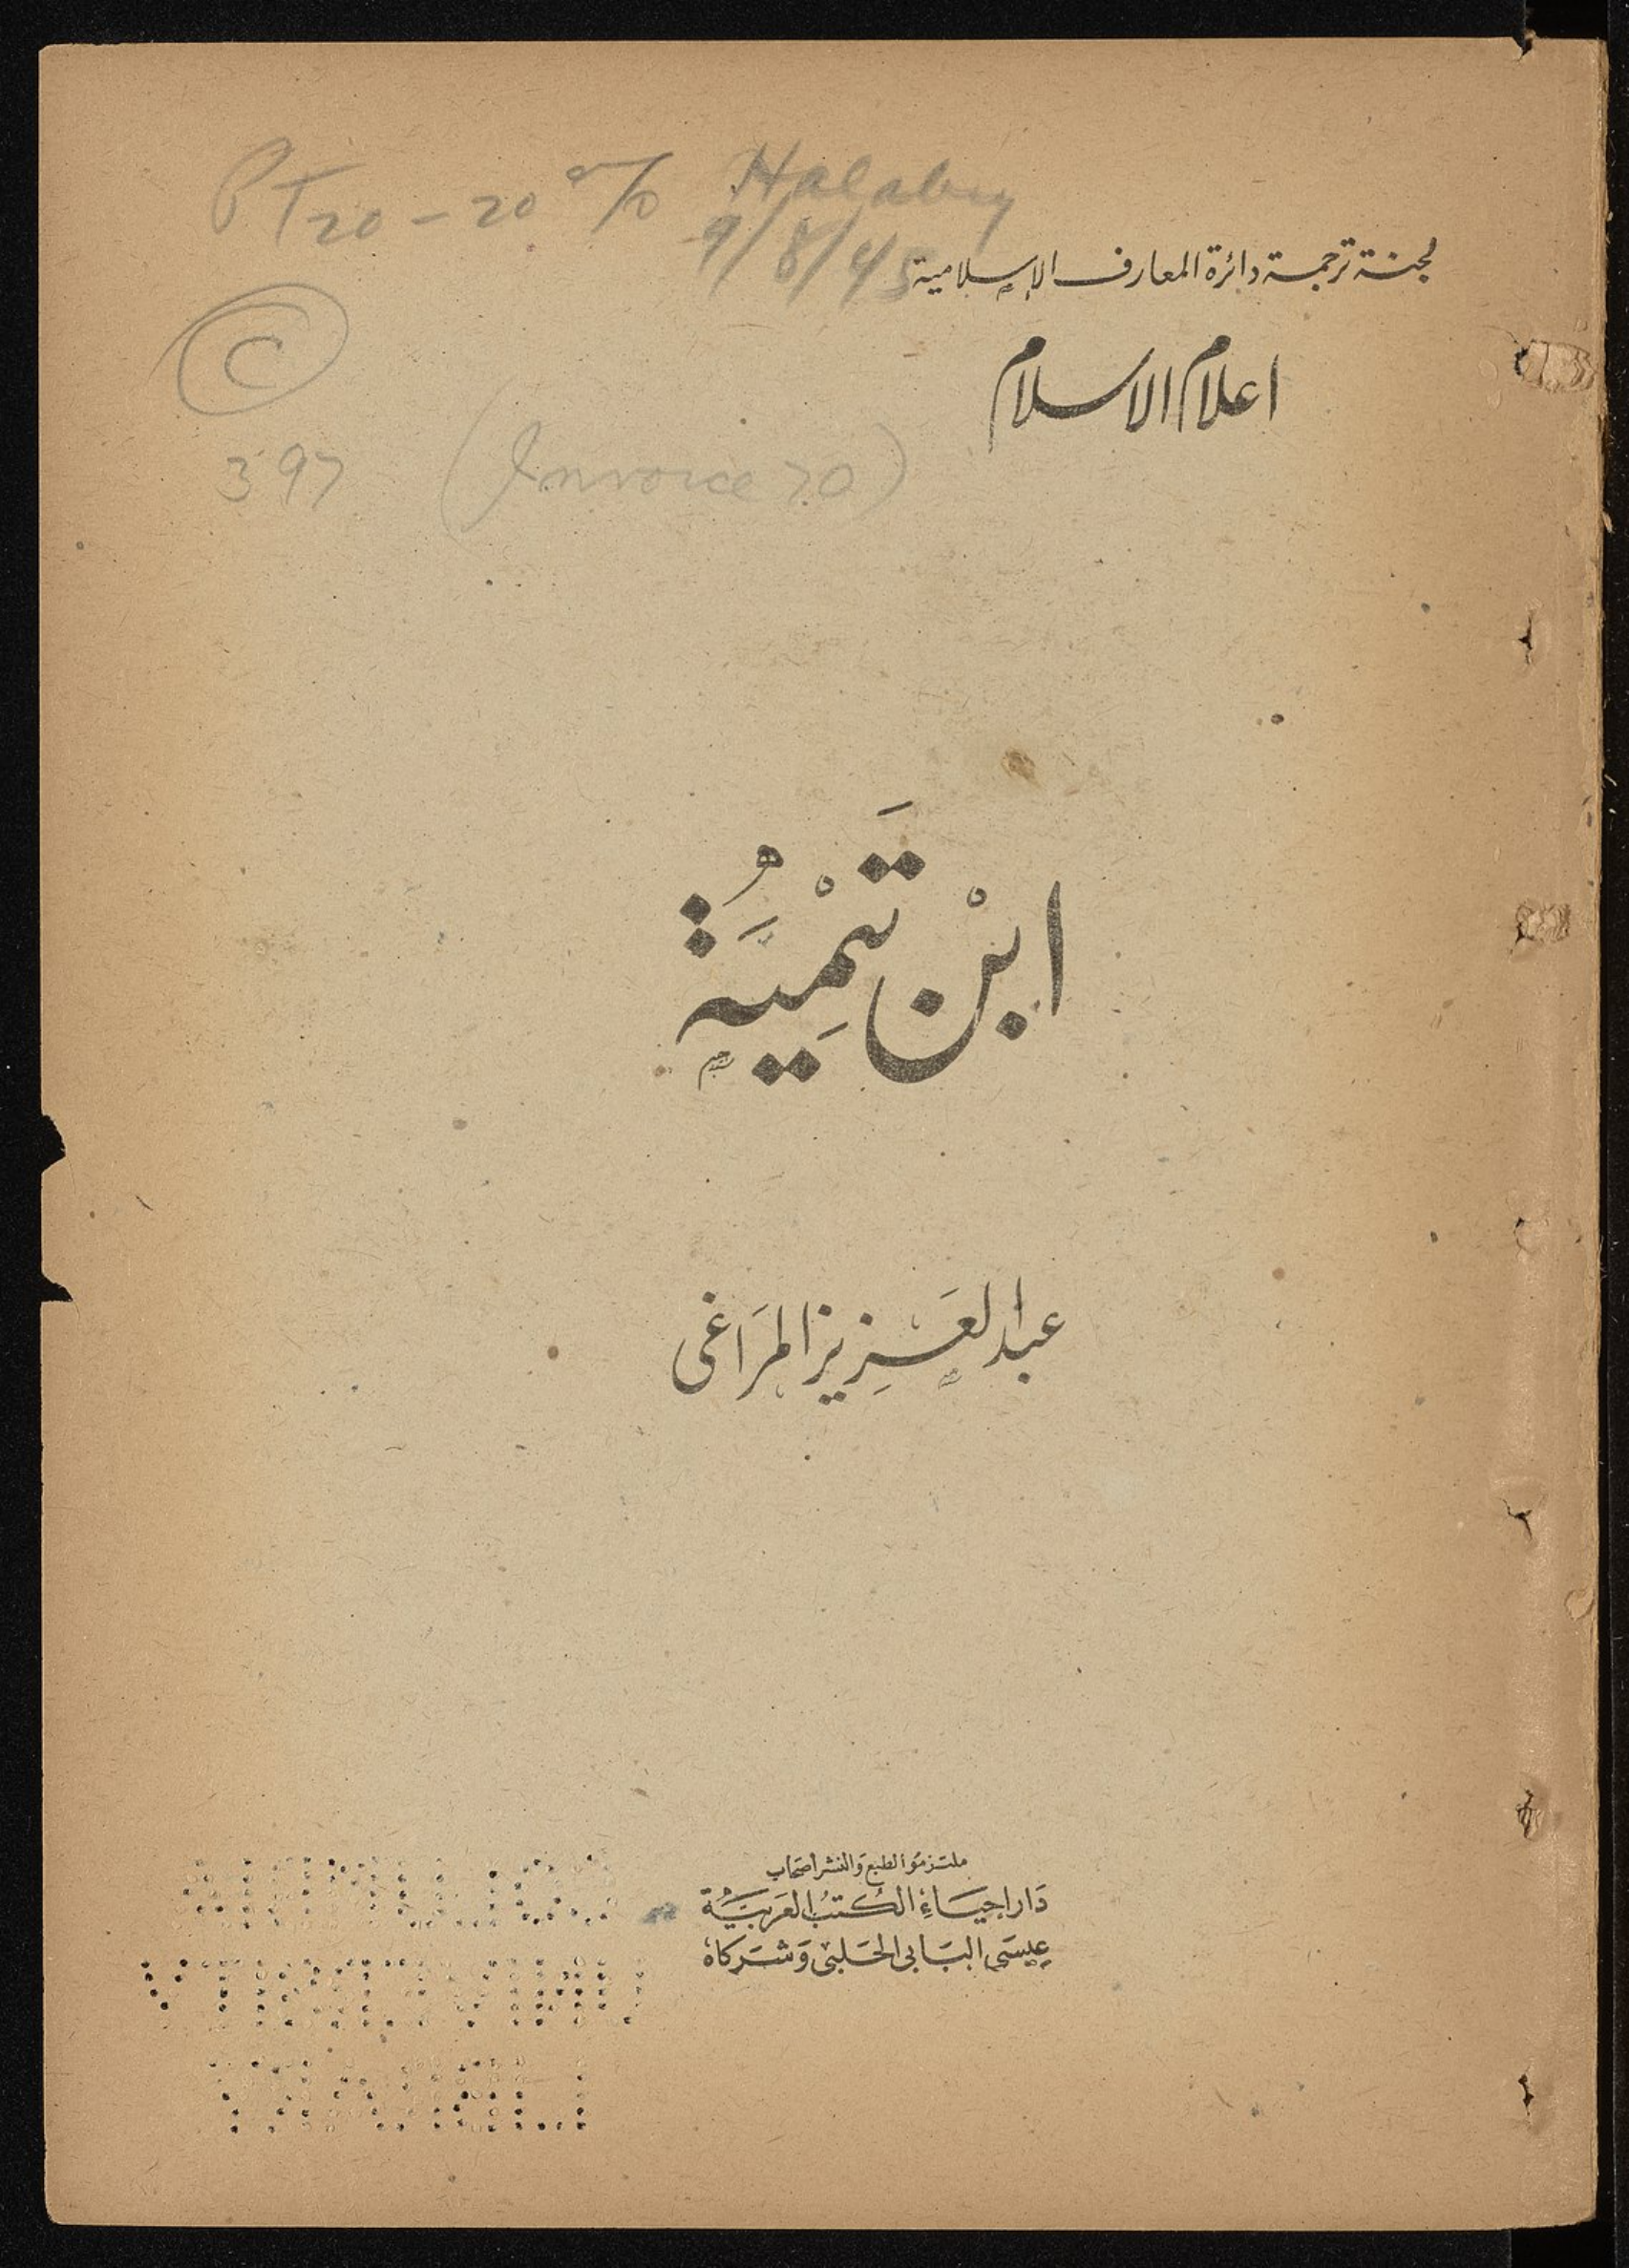 PT 20 - 20 % Halaby
9/8/45
لجنة ترجمة دائرة المعارف الإسلامية
اعلام الاسلام
C
397 (Invoice 70)
ابْن تَيْمِيَّةُ
عبد العَزِيز المَرَاغى
ملتزمو الطبع والنشر أصحاب
دَار احيَاءِ الكُتبُ العَربيَّة
عِيسَى البَابى الحَلبى وَشركاهُ